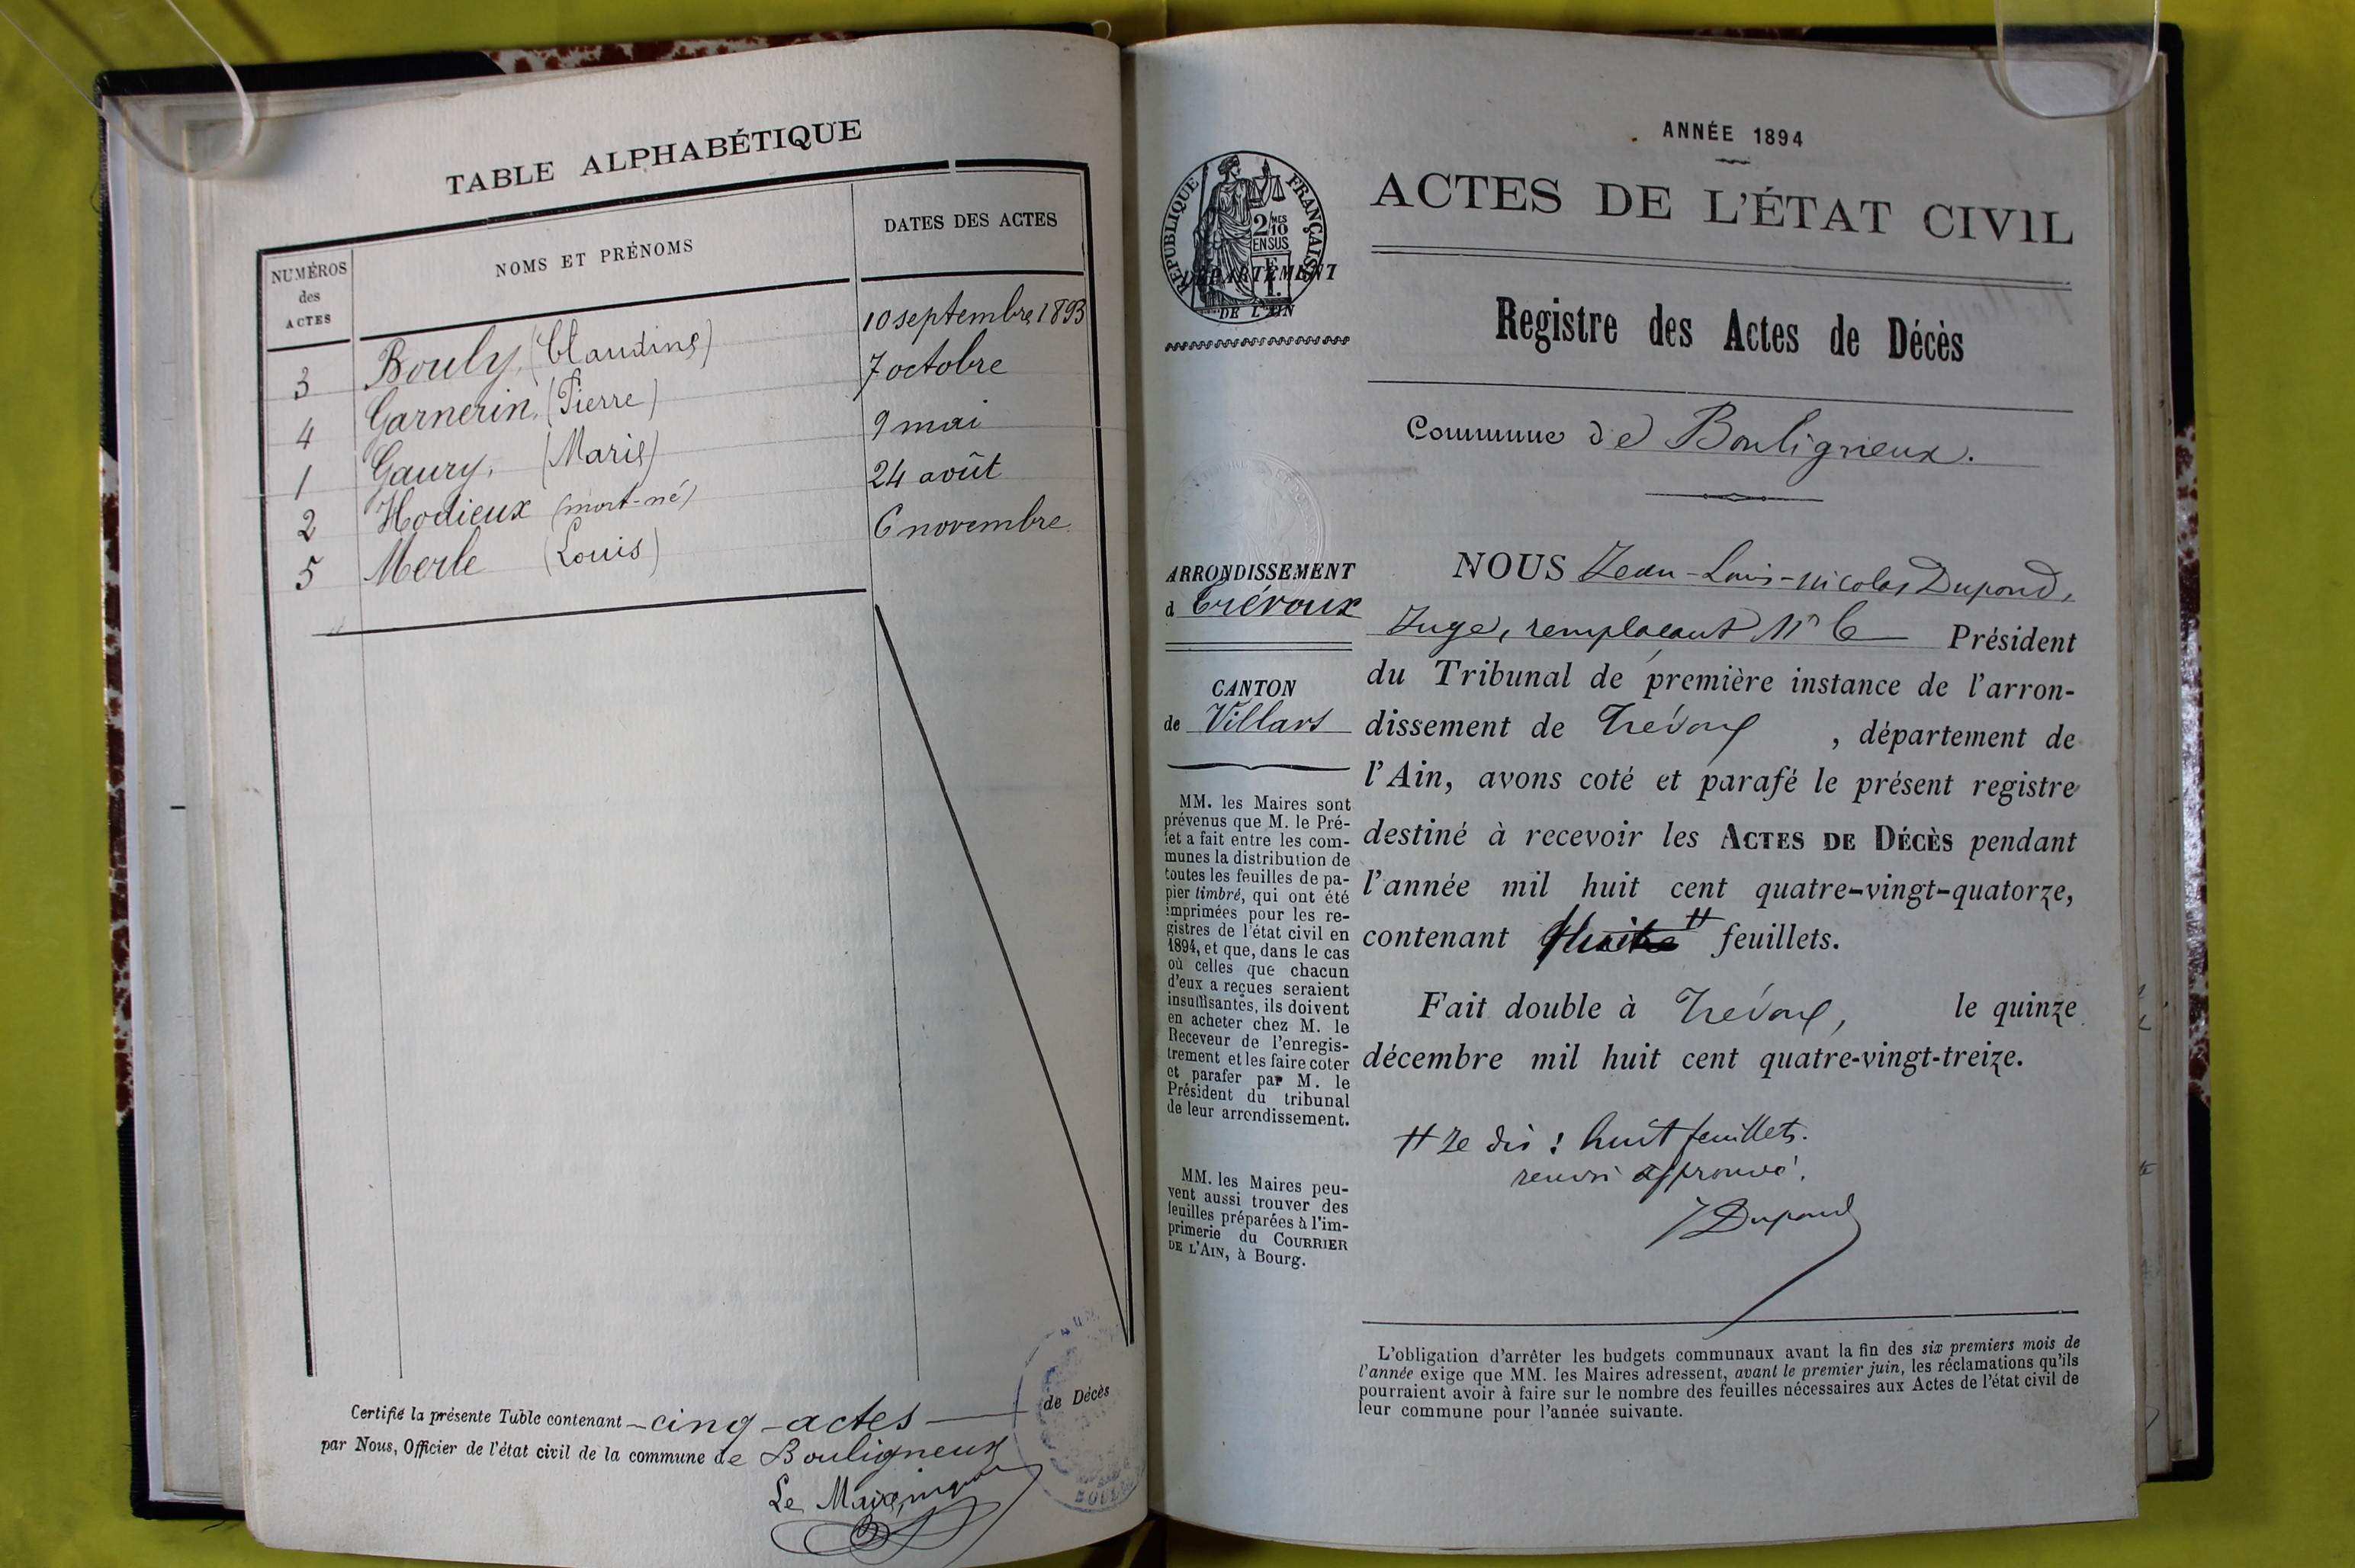 TABLE ALPHABÉTIQUE
NUMÉROS
des
ACTES
NOMS ET PRÉNOMS
DATES DES ACTES
3 Bouly, (Claudine) 10 septembre 1893
4 Garnerin, (Pierre) 7 octobre
1 Gaury, (Marie) 9 mai
2 Hodieux (mort-né) 24 août
5 Merle (Louis) 6 novembre
Certifié la présente Table contenant cinq actes de Décès
par Nous, Officier de l'état civil de la commune de Bouligneux
Le Maire,
ANNÉE 1894
RÉPUBLIQUE FRANÇAISE
2/10 MES
EN SUS
DÉPARTEMENT
DE L'AIN
ACTES DE L'ÉTAT CIVIL
Registre des Actes de Décès
Commune de Bouligneux.
ARRONDISSEMENT
d Trévoux
CANTON
de Villars
MM. les Maires sont
prévenus que M. le Pré-
fet a fait entre les com-
munes la distribution de
toutes les feuilles de pa-
pier timbré, qui ont été
imprimées pour les re-
gistres de l'état civil en
1894, et que, dans le cas
où celles que chacun
d'eux a reçues seraient
insuffisantes, ils doivent
en acheter chez M. le
Receveur de l'enregis-
trement et les faire coter
et parafer par M. le
Président du tribunal
de leur arrondissement.
MM. les Maires peu-
vent aussi trouver des
feuilles préparées à l'im-
primerie du COURRIER
DE L'AIN, à Bourg.
NOUS Jean-Louis-Nicolas Dupond,
Juge, remplaçant Mr le Président
du Tribunal de première instance de l'arron-
dissement de Trévoux, département de
l'Ain, avons coté et parafé le présent registre
destiné à recevoir les ACTES DE DÉCÈS pendant
l'année mil huit cent quatre-vingt-quatorze,
contenant feuillets.
Fait double à Trévoux, le quinze
décembre mil huit cent quatre-vingt-treize.
# Je dis : huit feuillets.
renvoi approuvé.
J Dupond
L'obligation d'arrêter les budgets communaux avant la fin des six premiers mois de
l'année exige que MM. les Maires adressent, avant le premier juin, les réclamations qu'ils
pourraient avoir à faire sur le nombre des feuilles nécessaires aux Actes de l'état civil de
leur commune pour l'année suivante.